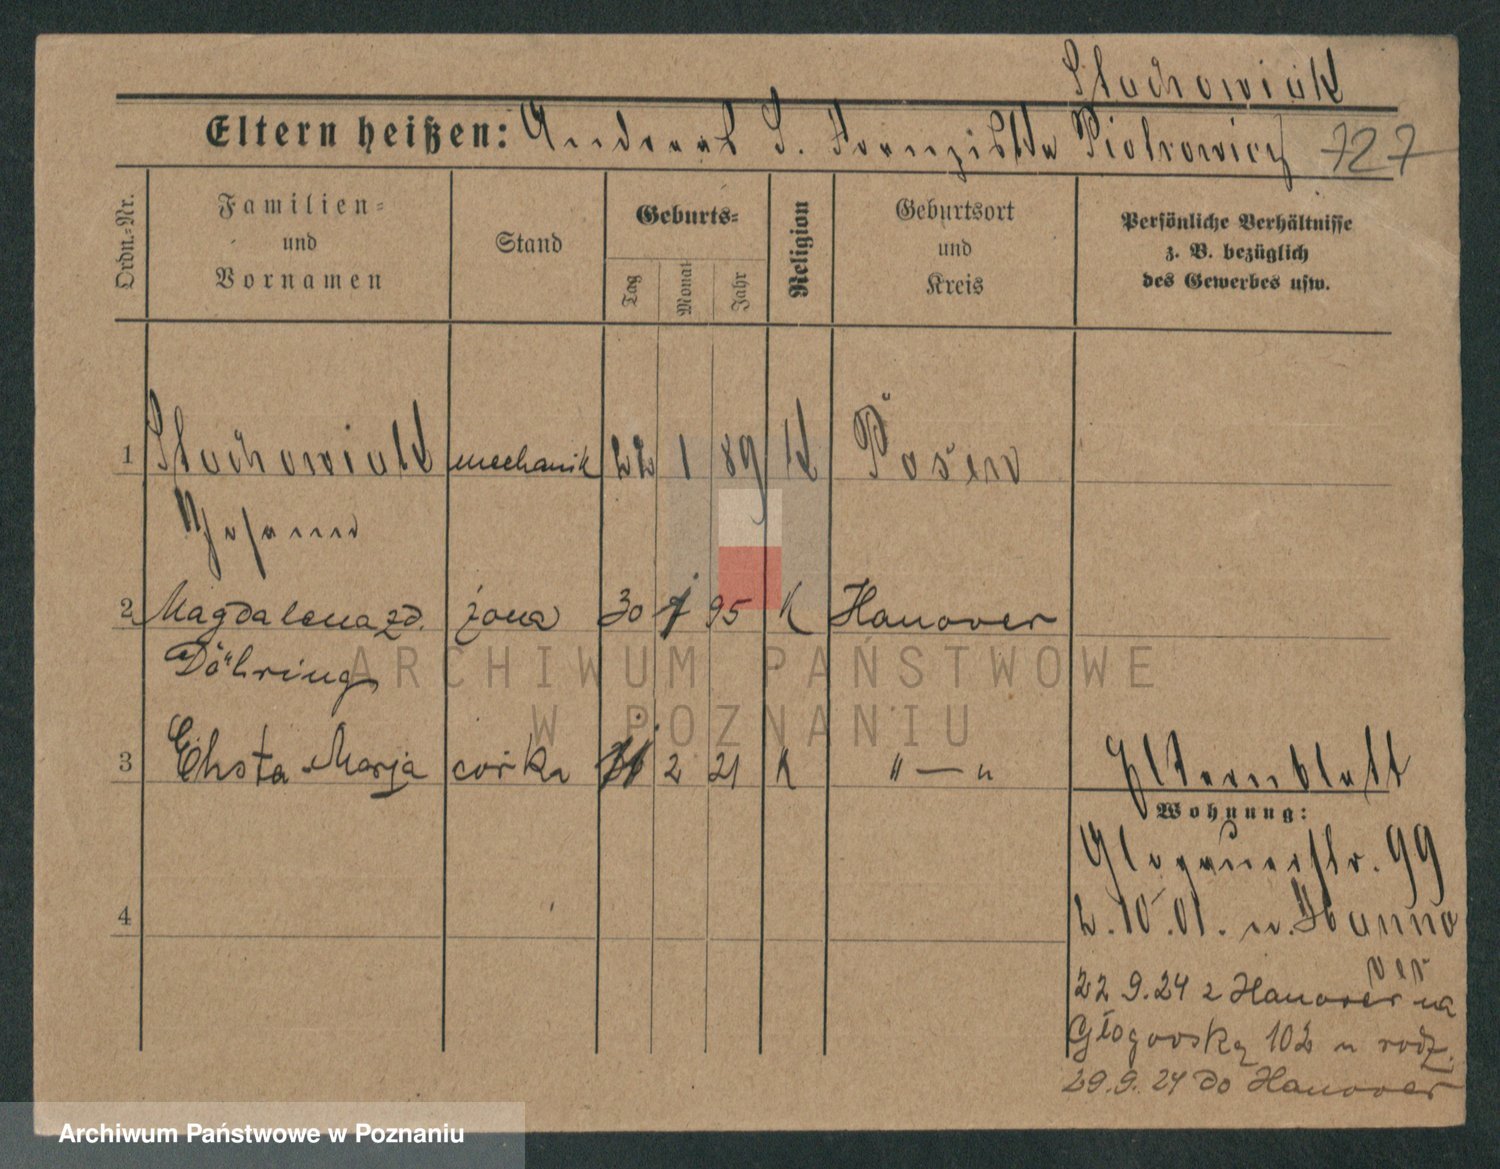 Stachowiak
Eltern heißen: Andreas S. Franziska Piotrowicz 727
Ordn.-Nr.
Familien-
und
Vornamen
Stand
Geburts-
Tag
Monat
Jahr
Religion
Geburtsort
und
Kreis
Persönliche Verhältnisse
z. B. bezüglich
des Gewerbes usw.
1 Stachowiak mechanik 22 1 89 K Posen
Johann
2 Magdalena zd. żona 30 95 K Hanover
Döhring
3 Marja córka 2 21 K " — "
Elternblatt
Wohnung:
Glogauerstr. 99
2.10.01. n. Hanno
ver
22 9.24 z Hanover na
Głogovską 102 u rodz.
29.9.24 do Hanover
4
ARCHIWUM PAŃSTWOWE
W POZNANIU
Archiwum Państwowe w Poznaniu